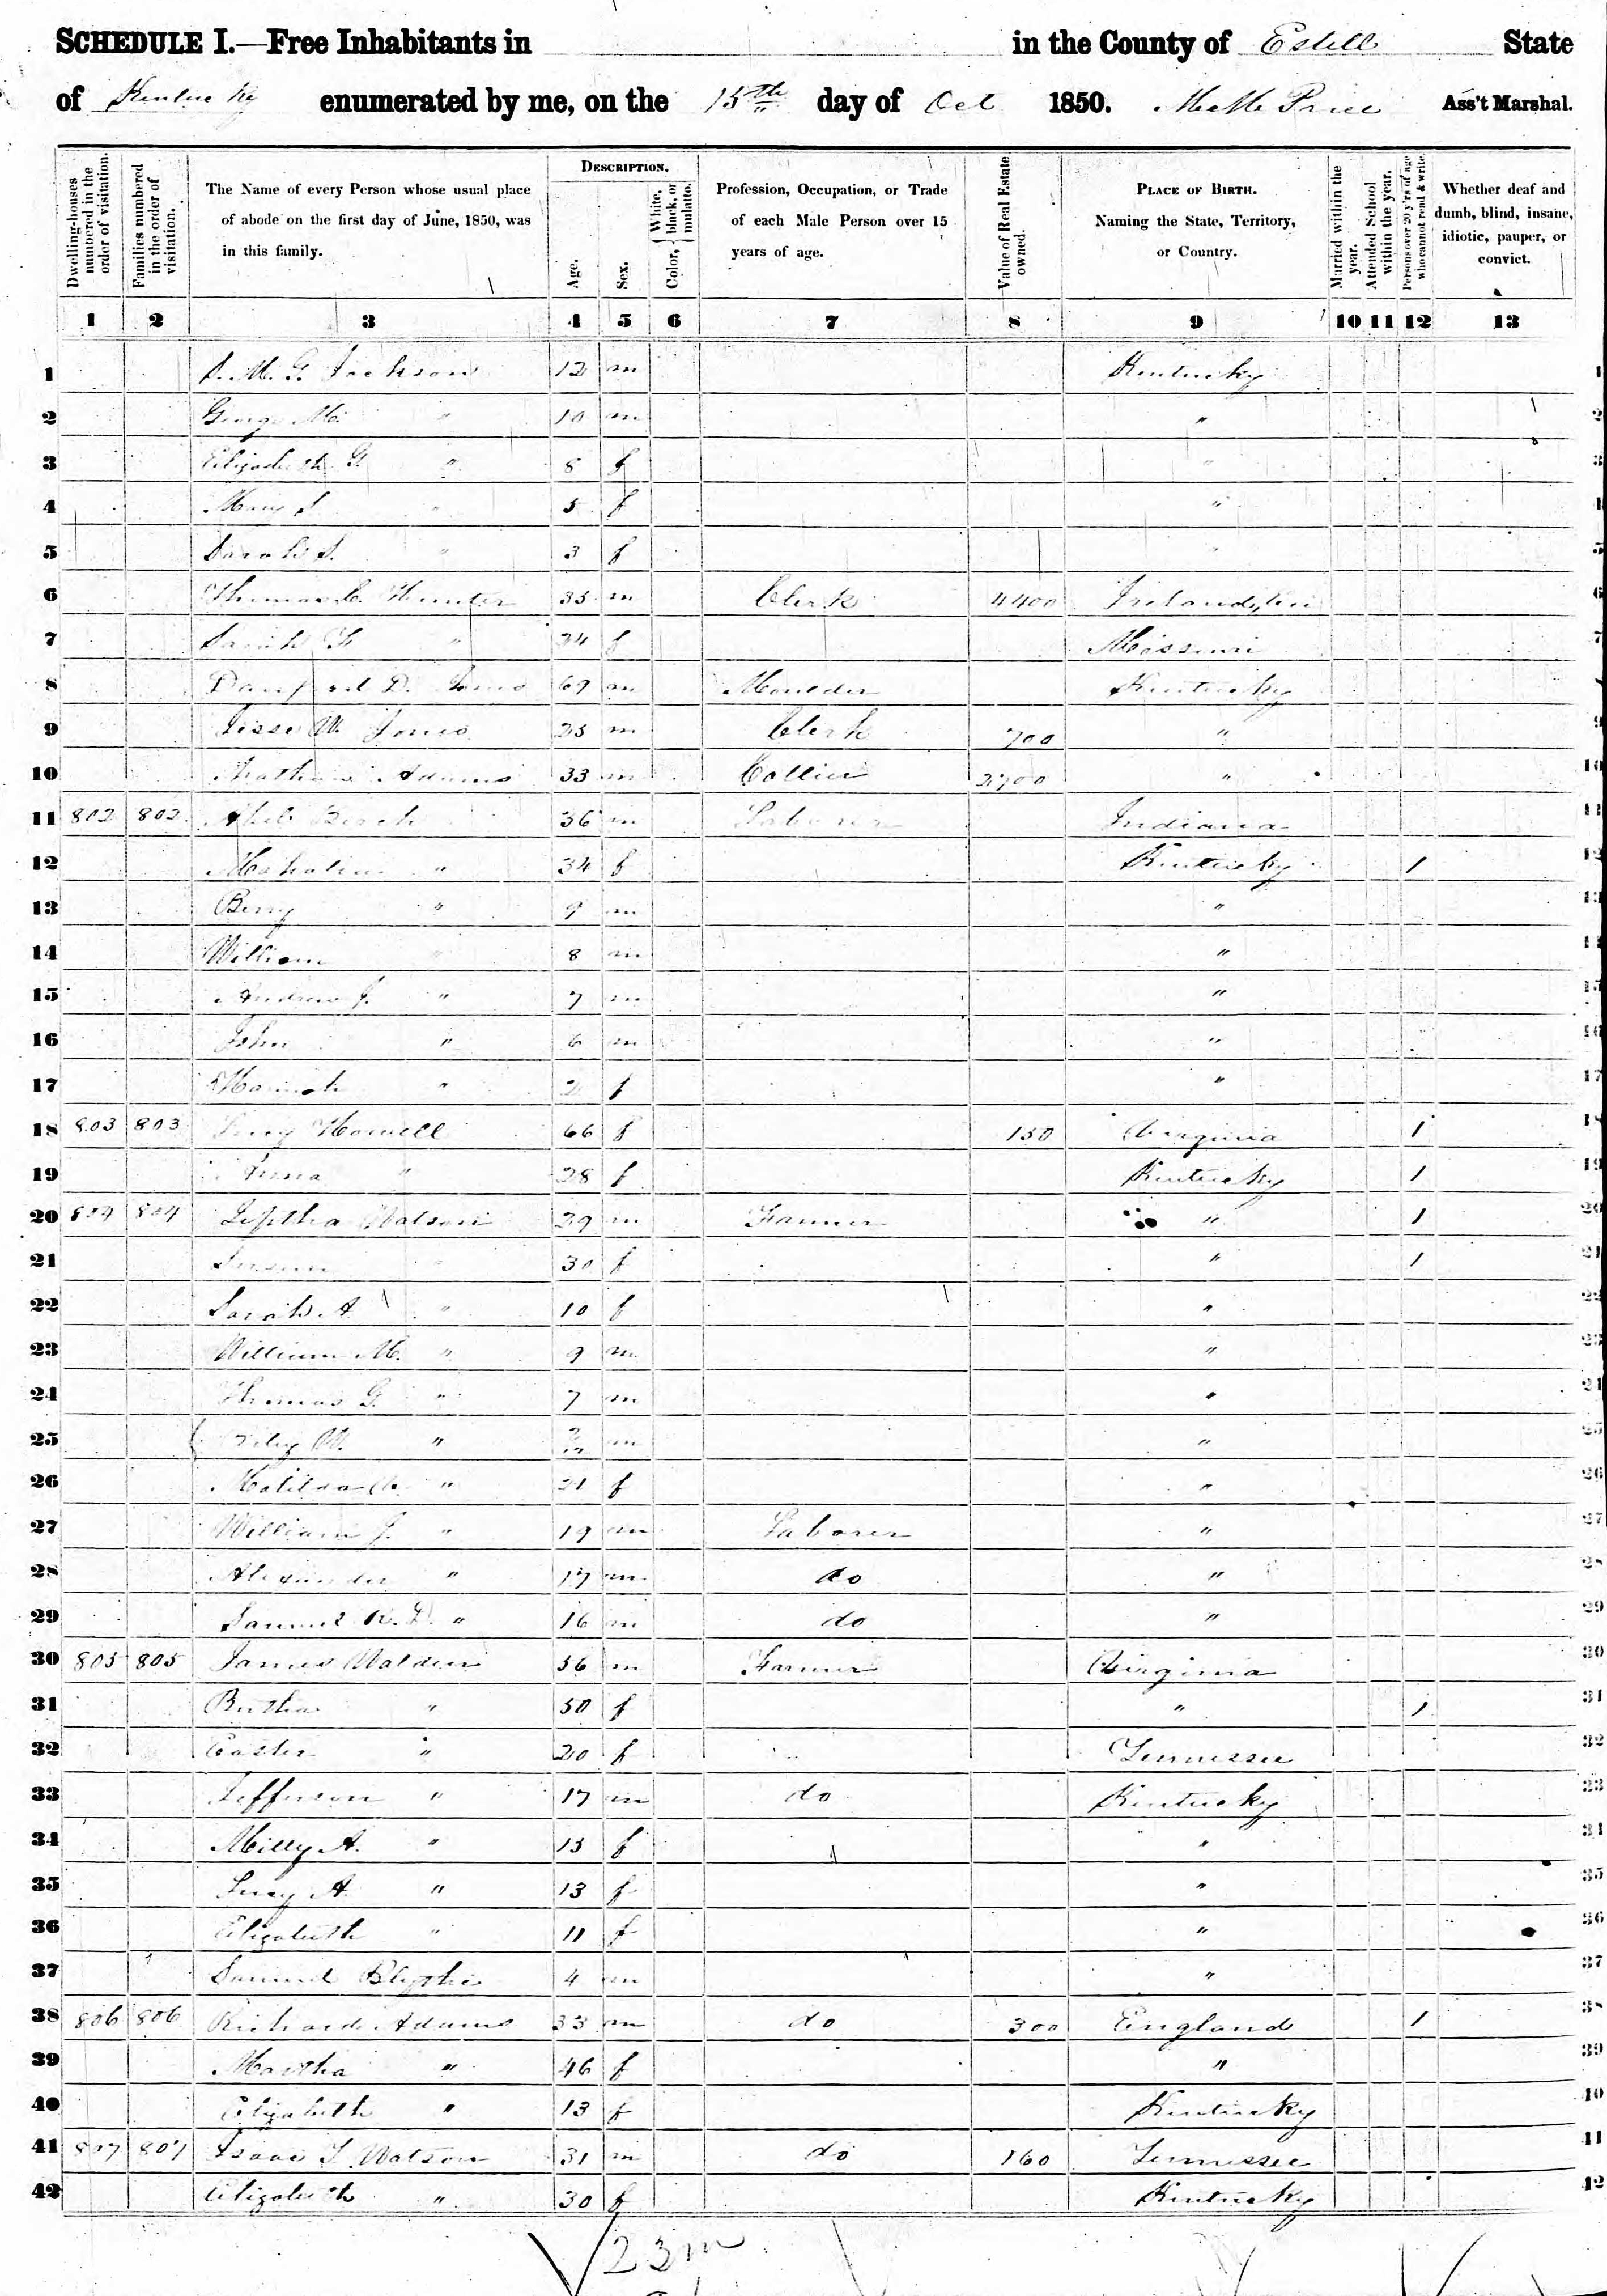 SCHEDULE I.—Free Inhabitants in in the County of Estill State
of Kentucky enumerated by me, on the 15th day of Oct 1850. Price Ass't Marshal.
Dwelling-houses numbered in the order of visitation.
Families numbered in the order of visitation.
The Name of every Person whose usual place of abode on the first day of June, 1850, was in this family.
DESCRIPTION.
Age.
Sex.
Color, { White, black, or mulatto.
Profession, Occupation, or Trade of each Male Person over 15 years of age.
Value of Real Estate owned.
PLACE OF BIRTH. Naming the State, Territory, or Country.
Married within the year.
Attended School within the year.
Persons over 20 y'rs of age who cannot read & write.
Whether deaf and dumb, blind, insane, idiotic, pauper, or convict.
1 2 3 4 5 6 7 8 9 10 11 12 13
1 M. G. Jackson 12 m Kentucky 1
2 George M. " 10 m " 2
3 Elizabeth G. " 8 f " 3
4 Mary S. " 5 f " 4
5 Sarah S. " 3 f " 5
6 Thomas C. Hunter 35 m Clerk 4400 Ireland 6
7 Sarah " 24 f Missouri 7
8 D. Jones 69 m Moulder Kentucky 8
9 Jesse W. Jones 25 m Clerk 700 " 9
10 Adams 33 m Collier 2700 " 10
11 802 802 36 m Laborer Indiana 11
12 " 34 f Kentucky 1 12
13 Berry " 9 m " 13
14 William " 8 m " 14
15 Andrew J. " 7 m " 15
16 John " 6 m " 16
17 Hannah " 2 f " 17
18 803 803 Howell 66 f 150 Virginia 1 18
19 " 28 f Kentucky 1 19
20 804 804 Jeptha Watson 29 m Farmer " 1 20
21 " 30 f " 1 21
22 Sarah A " 10 f " 22
23 William M. " 9 m " 23
24 Thomas G. " 7 m " 24
25 " m " 25
26 Matilda " 21 f " 26
27 William J. " 19 m Laborer " 27
28 Alexander " 17 m do " 28
29 Samuel R. D. " 16 m do " 29
30 805 805 James Walden 56 m Farmer Virginia 30
31 " 50 f " 1 31
32 Easter " 20 f Tennessee 32
33 Jefferson " 17 m do Kentucky 33
34 Milly A. " 15 f " 34
35 Lucy A " 13 f " 35
36 Elizabeth " 11 f " 36
37 Samuel Blythe 4 m " 37
38 806 806 Richard Adams 33 m do 300 England 1 38
39 Martha " 46 f " 39
40 Elizabeth " 13 f Kentucky 40
41 807 807 Isaac T. Watson 31 m do 160 Tennessee 41
42 Elizabeth " 30 f Kentucky 42
23 m